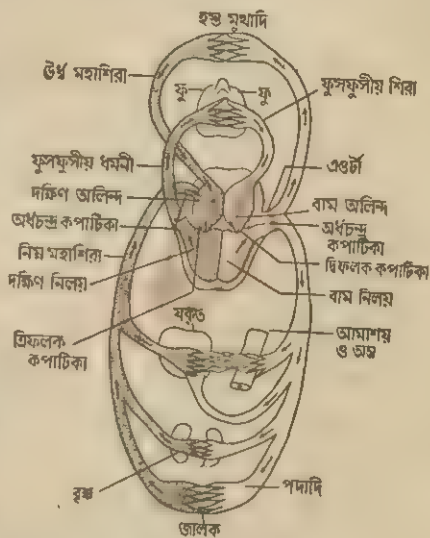 হস্ত মুখাদি
ঊর্ধ মহাশিরা
ফু
ফু
ফুসফুসীয় শিরা
ফুসফুসীয় ধমনী
এওর্টা
দক্ষিণ অলিন্দ
বাম অলিন্দ
অর্ধচন্দ্র কপাটিকা
অর্ধচন্দ্র
কপাটিকা
নিম্ন মহাশিরা
দ্বিফলক কপাটিকা
দক্ষিণ নিলয়
বাম নিলয়
যকৃত
ত্রিফলক
কপাটিকা
আমাশয়
ও অন্ত্র
বৃক্ক
পদাদি
জালক